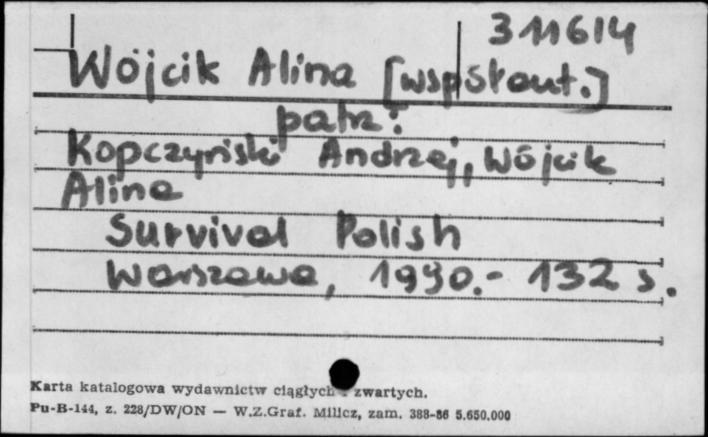 311614
Wójcik Alina [współaut.]
patrz:
Kopczyński Andrzej, Wójcik
Alina
Survival Polish
Warszawa, 1990.- 132 s.
Karta katalogowa wydawnictw ciągłych i zwartych.
Pu-B-144, z. 228/DW/ON — W.Z.Graf. Milicz, zam. 388-86 5.650.000